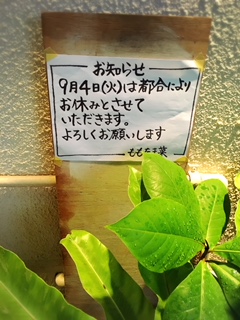 お知らせ
9月4日(火)は都合により
お休みとさせて
いただきます。
よろしくお願いします